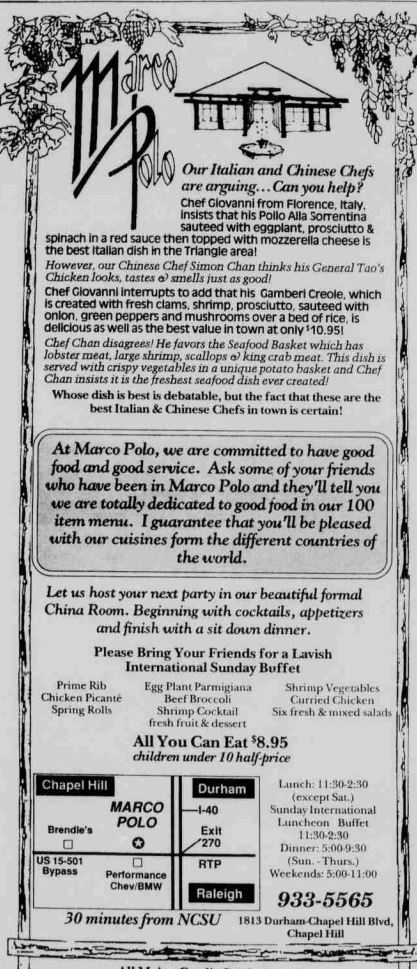 Marco
Polo
Our Italian and Chinese Chefs
are arguing... Can you help?
Chef Giovanni from Florence, Italy,
insists that his Pollo Alla Sorrentina
sauteed with eggplant, prosciutto &
spinach in a red sauce then topped with mozzerella cheese is
the best Italian dish in the Triangle area!
However, our Chinese Chef Simon Chan thinks his General Tao's
Chicken looks, tastes & smells just as good!
Chef Giovanni interrupts to add that his Gamberi Creole, which
is created with fresh clams, shrimp, prosciutto, sauteed with
onion, green peppers and mushrooms over a bed of rice, is
delicious as well as the best value in town at only $10.95!
Chef Chan disagrees! He favors the Seafood Basket which has
lobster meat, large shrimp, scallops & king crab meat. This dish is
served with crispy vegetables in a unique potato basket and Chef
Chan insists it is the freshest seafood dish ever created!
Whose dish is best is debatable, but the fact that these are the
best Italian & Chinese Chefs in town is certain!
At Marco Polo, we are committed to have good
food and good service. Ask some of your friends
who have been in Marco Polo and they'll tell you
we are totally dedicated to good food in our 100
item menu. I guarantee that you'll be pleased
with our cuisines form the different countries of
the world.
Let us host your next party in our beautiful formal
China Room. Beginning with cocktails, appetizers
and finish with a sit down dinner.
Please Bring Your Friends for a Lavish
International Sunday Buffet
Prime Rib
Chicken Picanté
Spring Rolls
Egg Plant Parmigiana
Beef Broccoli
Shrimp Cocktail
fresh fruit & dessert
Shrimp Vegetables
Curried Chicken
Six fresh & mixed salads
All You Can Eat $8.95
children under 10 half-price
Chapel Hill
Durham
MARCO
POLO
I-40
Brendle's
Exit
270
US 15-501
Bypass
Performance
Chev/BMW
RTP
Raleigh
Lunch: 11:30-2:30
(except Sat.)
Sunday International
Luncheon Buffet
11:30-2:30
Dinner: 5:00-9:30
(Sun. - Thurs.)
Weekends: 5:00-11:00
933-5565
30 minutes from NCSU
1813 Durham-Chapel Hill Blvd,
Chapel Hill